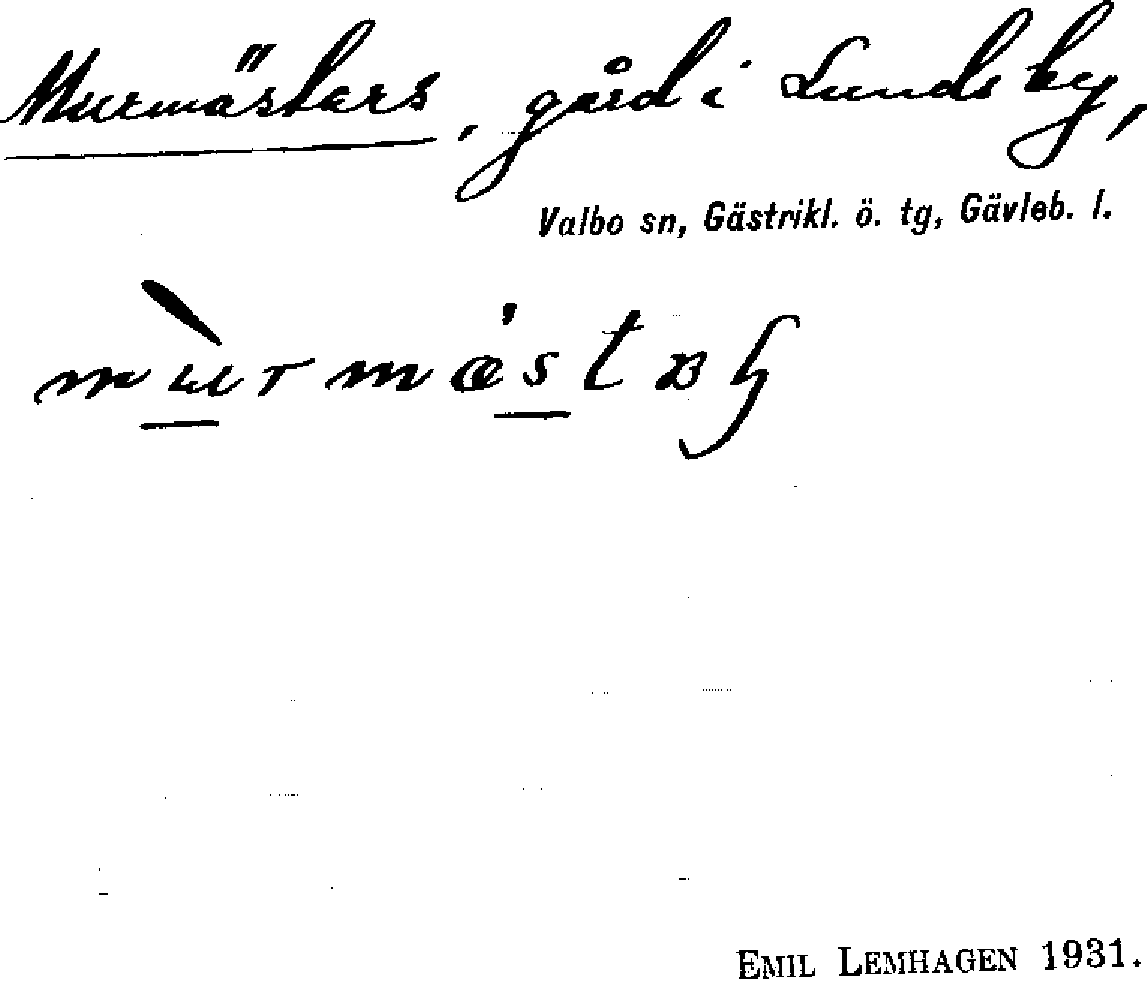 Murmästars, gård i Lunds by,
Valbo sn, Gästrikl. ö. tg, Gävleb. l.
EMIL LEMHAGEN 1931.